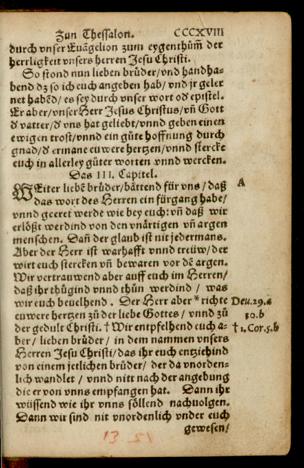 Zun Thessalon. CCCXVIII
durch vnser Euãgelion zum eygenthům der
herrligkeit vnsers herren Jesu Christi.
So stond nun lieben brůder/vnd handha-
bend dz so ich euch angeben hab/ vnd jr geler
net habẽd/ es sey durch vnser wort od epistel.
Er aber/vnser Herr Jesus Christus/vñ Gott
d vatter/ď vns hat geliebt/vnnd geben einen
ewigen trost/vnnd ein gůte hoffnung durch
gnad/ď ermane euwere hertzen/vnnd stercke
euch in allerley gůter worten vnnd wercken.
Das III. Capitel.
WEiter liebẽ brůder/bättend für vns/daß A
das wort des Herren ein fürgang habe/
vnnd geeret werde wie bey euch: vñ daß wir
erlößt werdind von den vnärtigen vñ argen
menschen. Dañ der glaub ist nit jedermans.
Aber der Herr ist warhafft vnnd treüw/ der
wirt euch stercken vñ bewaren vor dẽ argen.
Wir vertrauwend aber auff euch im Herren/
daß ihr thůgind vnnd thůn werdind / was
wir euch beuelhend. Der Herr aber * richte Deu.29.a
euwere hertzen zů der liebe Gottes / vnnd zů 30.b
der gedult Christi. † Wir entpfelhend euch a- † 1.Cor.5.b
ber/ lieben brůder / in dem nammen vnsers
Herren Jesu Christi/das ihr euch entziehind
von einem jetlichen brůder/ der da vnorden-
lich wandlet / vnnd nitt nach der angebung
die er von vnns empfangen hat. Dann ihr
wüssend wie ihr vnns söllend nachuolgen.
Dann wir sind nit vnordenlich vnder euch
gewesen/